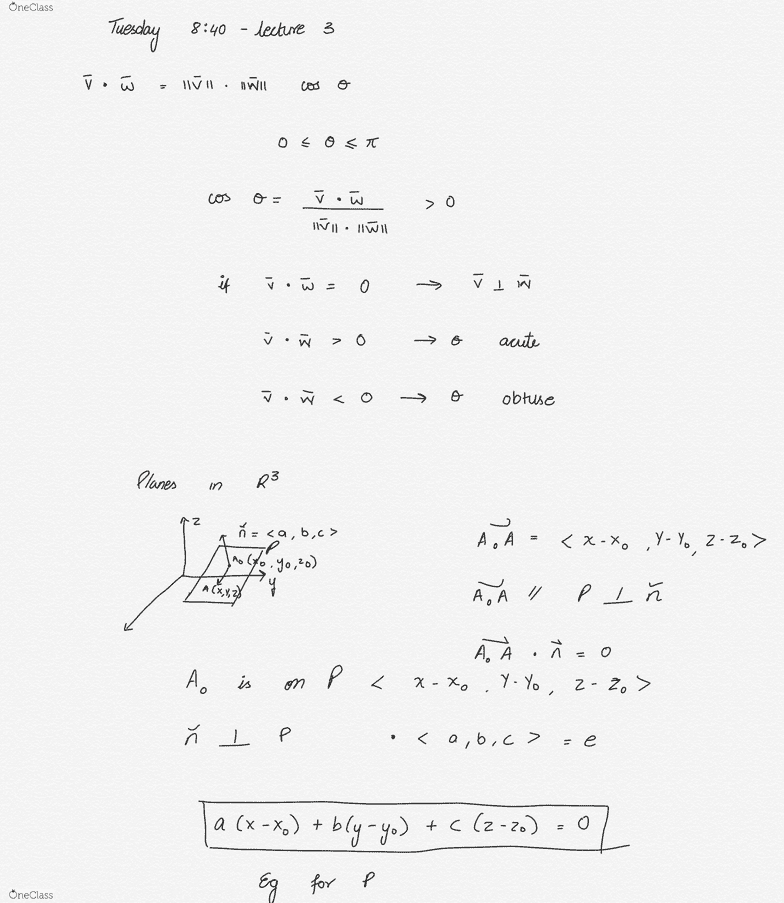 OneClass
Tuesday 8:40 - lecture 3
v̄ · w̄ = ||v̄|| · ||w̄|| cos θ
0 ≤ θ ≤ π
cos θ = v̄ · w̄ / ||v̄|| · ||w̄|| > 0
if v̄ · w̄ = 0 → v̄ ⊥ w̄
v̄ · w̄ > 0 → θ acute
v̄ · w̄ < 0 → θ obtuse
Planes in R³
z
n⃗ = <a, b, c>
P
A₀ (x₀, y₀, z₀)
y
A (x, y, z)
A₀A⃗ = < x - x₀, y - y₀, z - z₀ >
A₀A⃗ // P ⊥ n⃗
A₀A⃗ · n⃗ = 0
A₀ is on P < x - x₀, y - y₀, z - z₀ >
n⃗ ⊥ P · < a, b, c > = e
a (x - x₀) + b(y - y₀) + c (z - z₀) = 0
Eg for P
OneClass